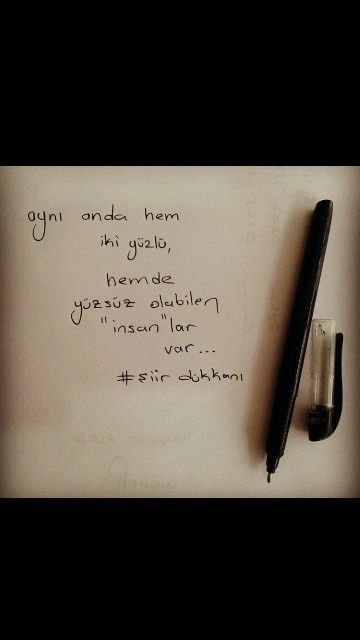 aynı anda hem
iki yüzlü,
hemde
yüzsüz olabilen
"insan"lar
var...
#şiir dükkanı